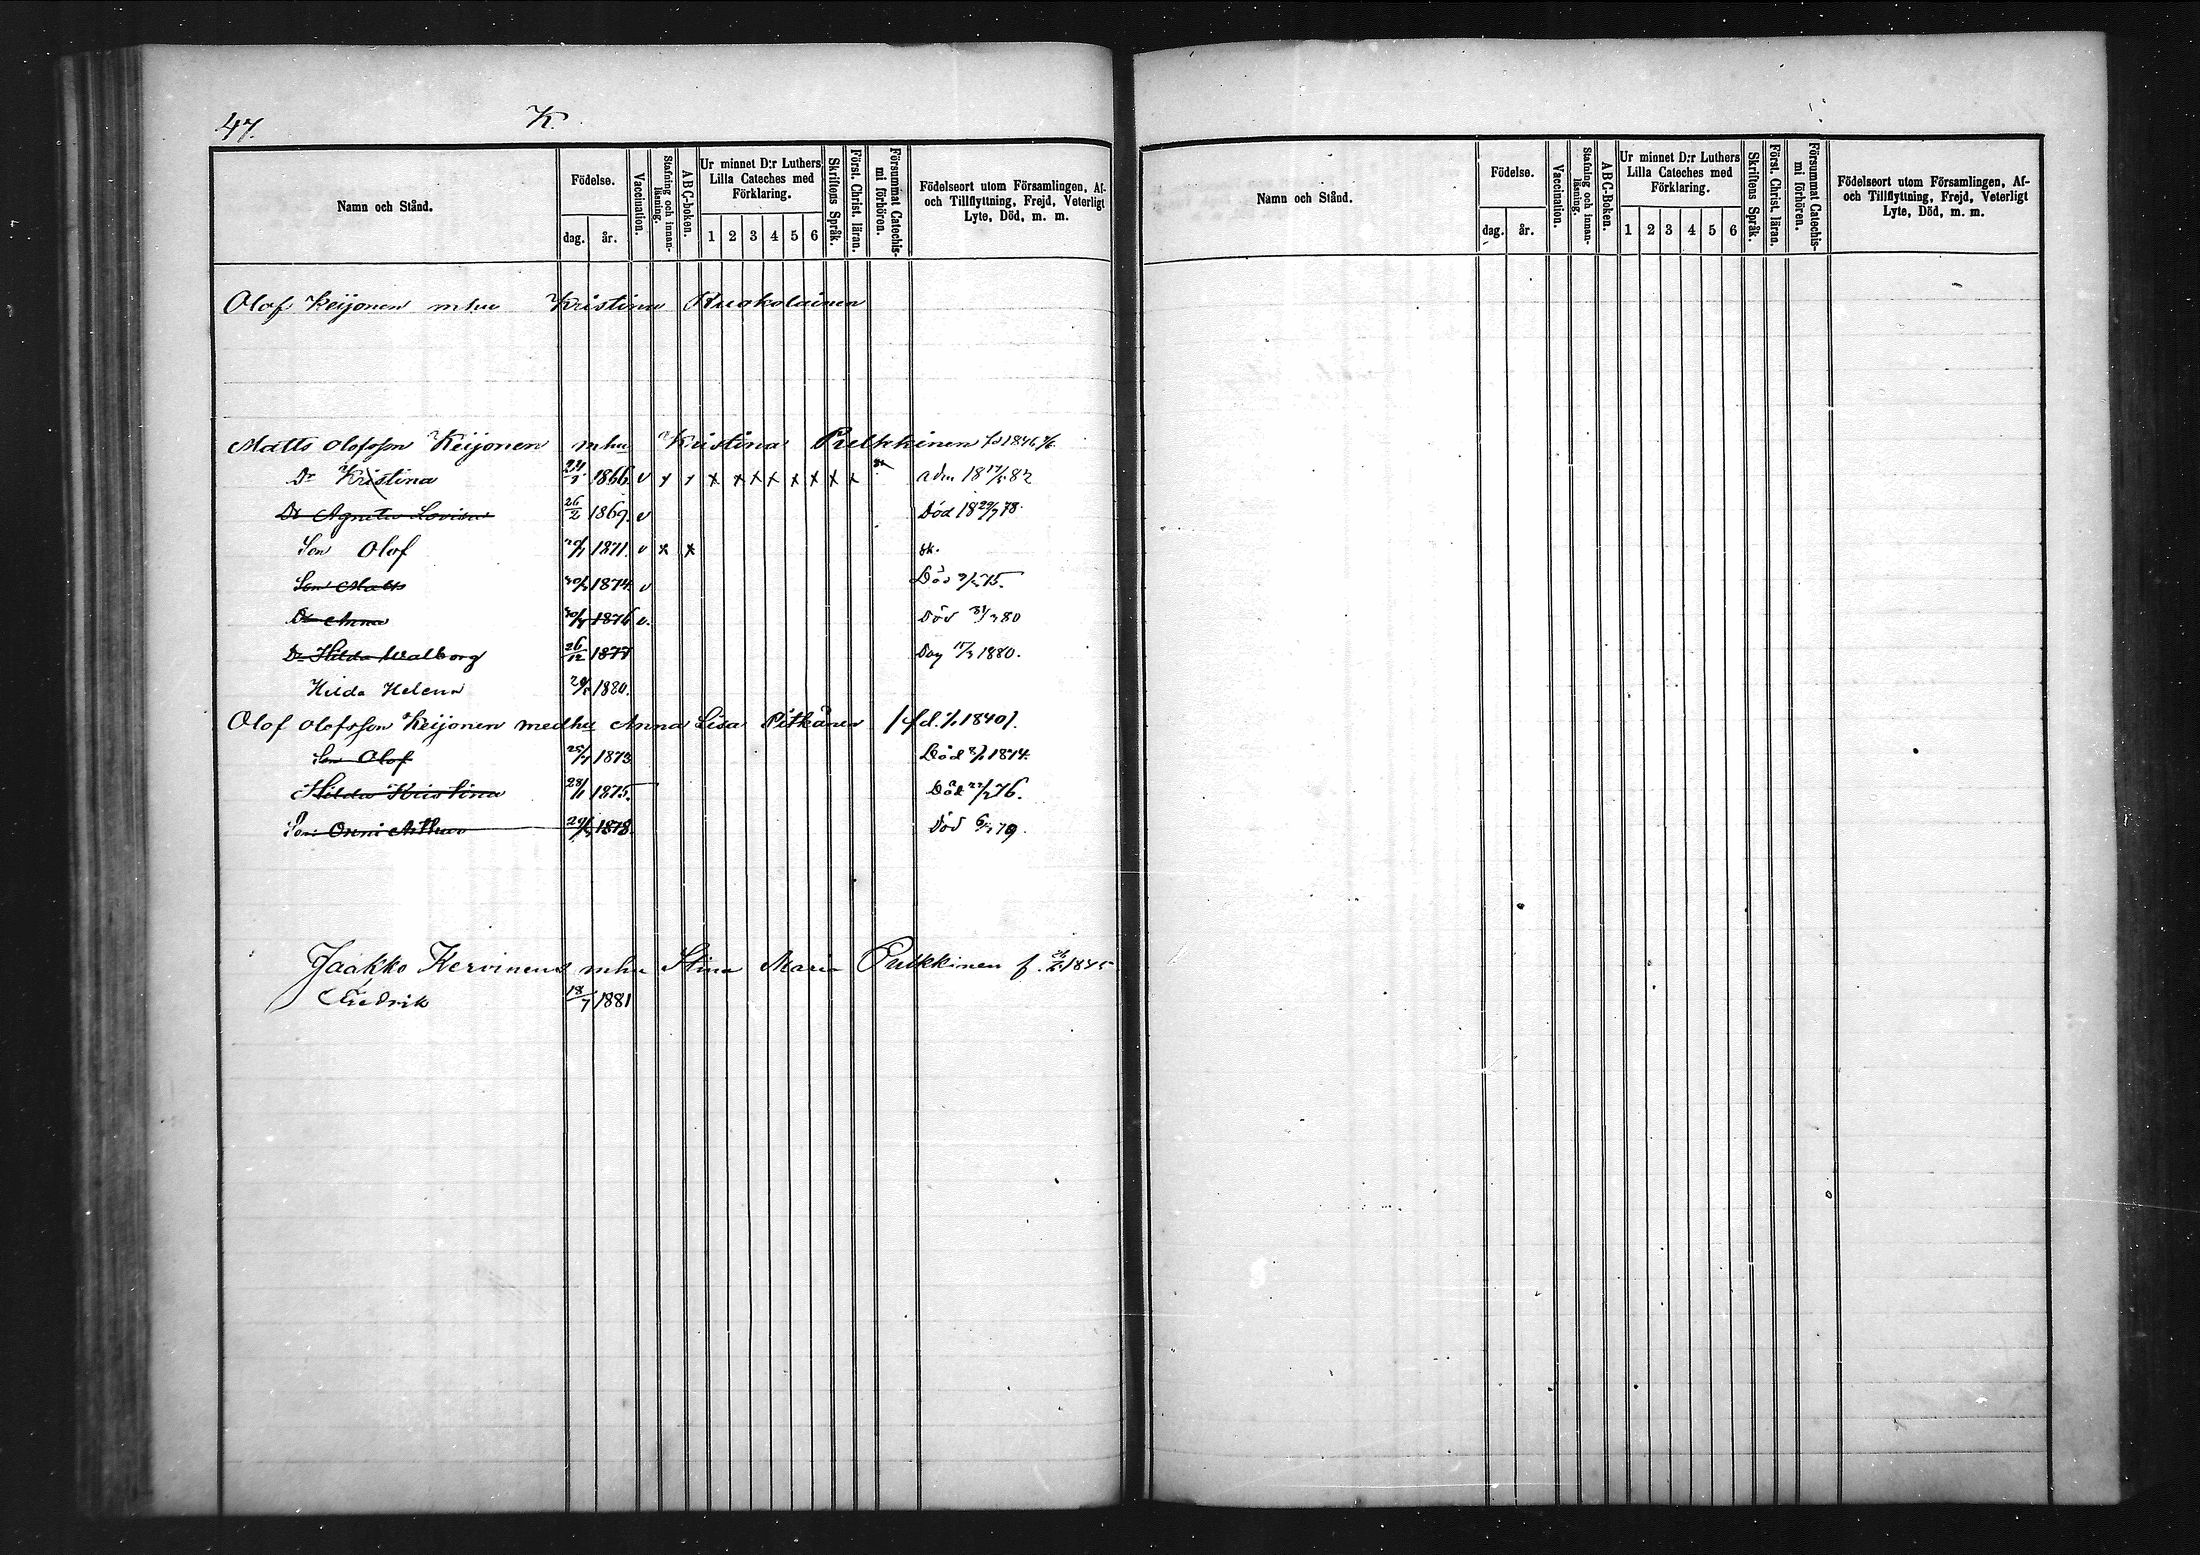 47. K.
Namn och Stånd. Födelse. dag. år. Vaccination. Stafning och innanläsning. ABC-boken. Ur minnet D:r Luthers Lilla Cateches med Förklaring. 1 2 3 4 5 6 Skriftens Språk. Först. Christ. läran. Försummat Catechismi förhören. Födelseort utom Församlingen, Af- och Tillflyttning, Frejd, Veterligt Lyte, Död, m. m.
Olof Keijonen mhu Kristina Ruokolainen
Matts Olofsson Keijonen mhu Kristina Pulkkinen 1846
Dr Kristina 1866 v x x x x x x x x x x adm 18 82
Dr Agneta Lovisa 26/2 1869. v Död 18 29/7 78.
Son Olof 1871. v x x sk.
Son Matts 1874 v Död 75.
Dr Anna 1876 v. Död 80
Dr Hilda Walborg 26/12 1877 1880.
Hilda Helena 1880.
Olof Olofsson Keijonen med hu Anna Lisa Pitkänen /fd. 1840/.
Son Olof 1873 Död 1874.
Hilda Kristina 1875. Död 76.
Son Onni Arthur 1878. Död 79.
Jaakko Kervinens mhu Stina Maria Pulkkinen f. 1845
Fredrik 18/7 1881
Namn och Stånd. Födelse. dag. år. Vaccination. Stafning och innanläsning. ABC-Boken. Ur minnet D:r Luthers Lilla Cateches med Förklaring. 1 2 3 4 5 6 Skriftens Språk. Först. Christ. läran. Försummat Catechismi förhören. Födelseort utom Församlingen, Af- och Tillflyttning, Frejd, Veterligt Lyte, Död, m. m.